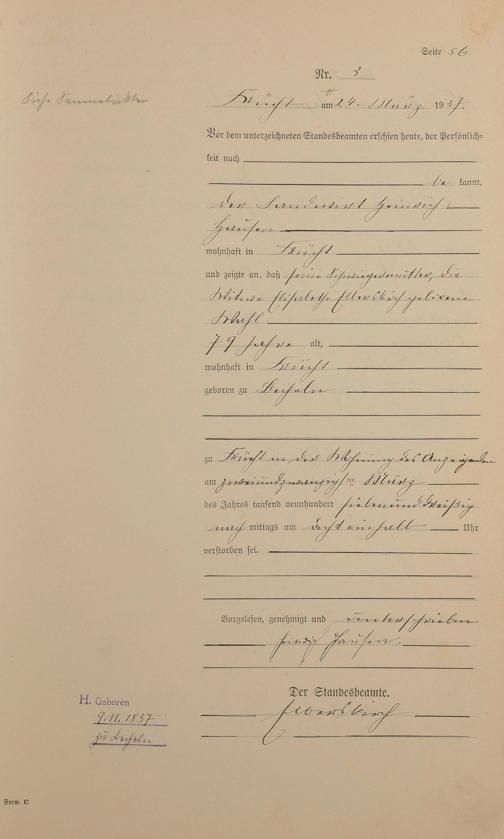 Seite 56
Nr. 3
Siehe Sammelakten
Frücht am 24. März 1937.
Vor dem unterzeichneten Standesbeamten erschien heute, der Persönlich-
keit nach
be kannt,
der Landwirt Heinrich
Hausen
wohnhaft in Frücht
und zeigte an, daß seine Schwiegermutter, die
Witwe Elisabethe Elberskirch geborene
Wahl
79 Jahre alt,
wohnhaft in Frücht
geboren zu Becheln
zu Frücht in der Wohnung des Anzeigenden
am zweiundzwanzigsten März
des Jahres tausend neunhundert siebenunddreißig
nach mittags um achteinhalb Uhr
verstorben sei.
Vorgelesen, genehmigt und unterschrieben
Heinrich Hausen.
Der Standesbeamte.
Elberskirch
H. Geboren
9.11.1857
zu Becheln
Form. C.